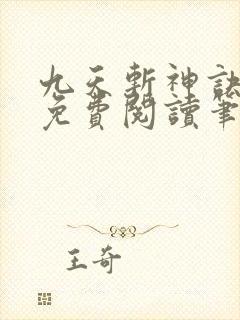 九天斬神訣
免費閱讀筆
王奇